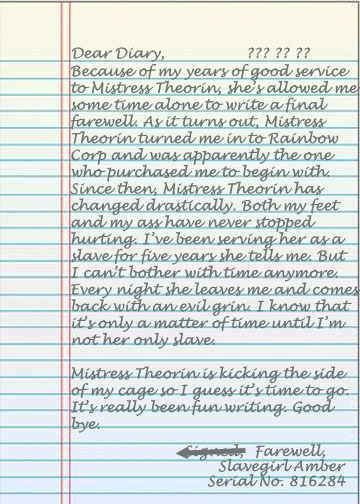 Dear Diary, ??? ?? ??
Because of my years of good service
to Mistress Theorin, she's allowed me
some time alone to write a final
farewell. As it turns out, Mistress
Theorin turned me in to Rainbow
Corp and was apparently the one
who purchased me to begin with.
Since then, Mistress Theorin has
changed drastically. Both my feet
and my ass have never stopped
hurting. I've been serving her as a
slave for five years she tells me. But
I can't bother with time anymore.
Every night she leaves me and comes
back with an evil grin. I know that
it's only a matter of time until I'm
not her only slave.
Mistress Theorin is kicking the side
of my cage so I guess it's time to go.
It's really been fun writing. Good
bye.
Signed, Farewell,
Slavegirl Amber
Serial No. 816284